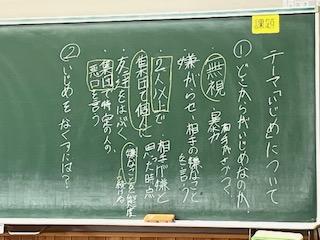 課題
テーマ「いじめ」について
①どこからがいじめなのか
相手がきずつく
無視・暴力
嫌がらせ・相手の嫌なこと
を言う
・2人以上で・相手が嫌と
集団で個人を 思った時点
・友達をはぶく
嫌なことを
続ける
・集団で特定の人の
悪口を言う
②いじめをなくすには?